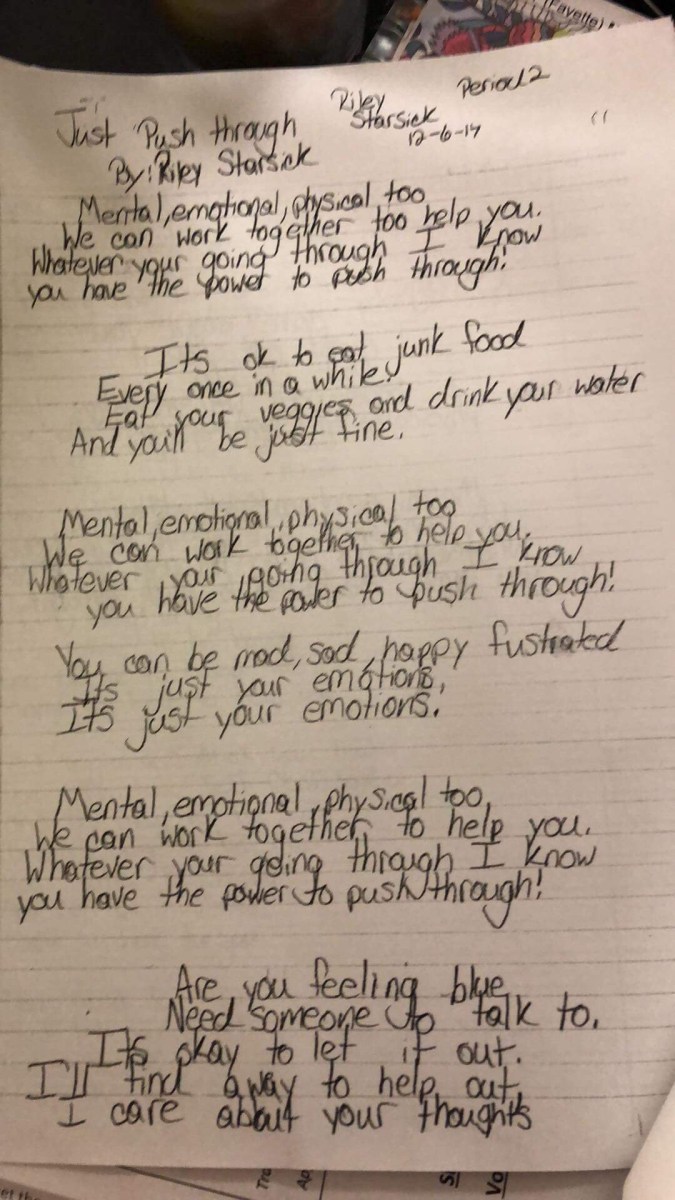 (Fayette)
Riley Period 2
Starsick
12-6-17
Just Push through
By: Riley Starsick
Mental, emotional, physical too
We can work together too help you.
Whatever your going through I know
you have the power to push through!
Its ok to eat junk food
Every once in a while,
Eat your veggies and drink your water
And you'll be just fine.
Mental, emotional, physical too
We can work together to help you,
Whatever your going through I know
you have the power to push through!
You can be mad, sad, happy fustrated
Its just your emotions,
Its just your emotions.
Mental, emotional, physical too,
We can work together to help you.
Whatever your going through I know
you have the power to push through!
Are you feeling blue
Need someone to talk to.
Its okay to let it out.
I'll find a way to help out
I care about your thoughts